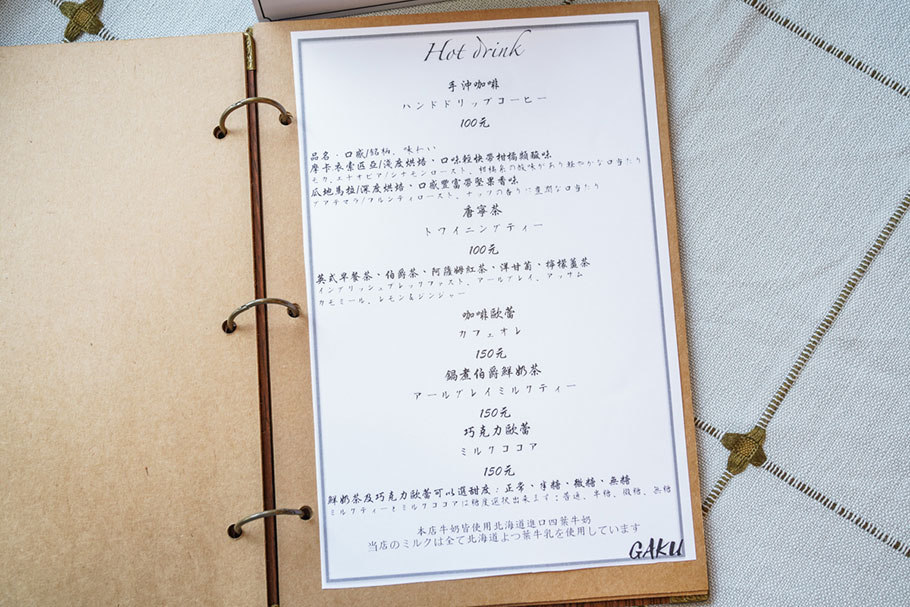 Hot drink
手沖咖啡
ハンドドリップコーヒー
100元
品名・口感/銘柄、味わい
摩卡衣索匹亞/淺度烘焙・口味輕快帶柑橘類酸味
モカ、エチオピア/シナモンロースト、柑橘系の酸味があり軽やかな口当たり
瓜地馬拉/深度烘焙・口感豐富帶堅果香味
グアテマラ/フルシティロースト、ナッツの香りに豊潤な口当たり
唐寧茶
トワイニングティー
100元
英式早餐茶・伯爵茶・阿薩姆紅茶・洋甘菊・檸檬薑茶
イングリッシュブレックファスト、アールグレイ、アッサム
カモミール、レモン&ジンジャー
咖啡歐蕾
カフェオレ
150元
鍋煮伯爵鮮奶茶
アールグレイミルクティー
150元
巧克力歐蕾
ミルクココア
150元
鮮奶茶及巧克力歐蕾可以選甜度：正常、半糖、微糖、無糖
ミルクティーとミルクココアは糖度選択出来ます：普通、半糖、微糖、無糖
本店牛奶皆使用北海道進口四葉牛奶
当店のミルクは全て北海道よつ葉牛乳を使用しています
GAKU